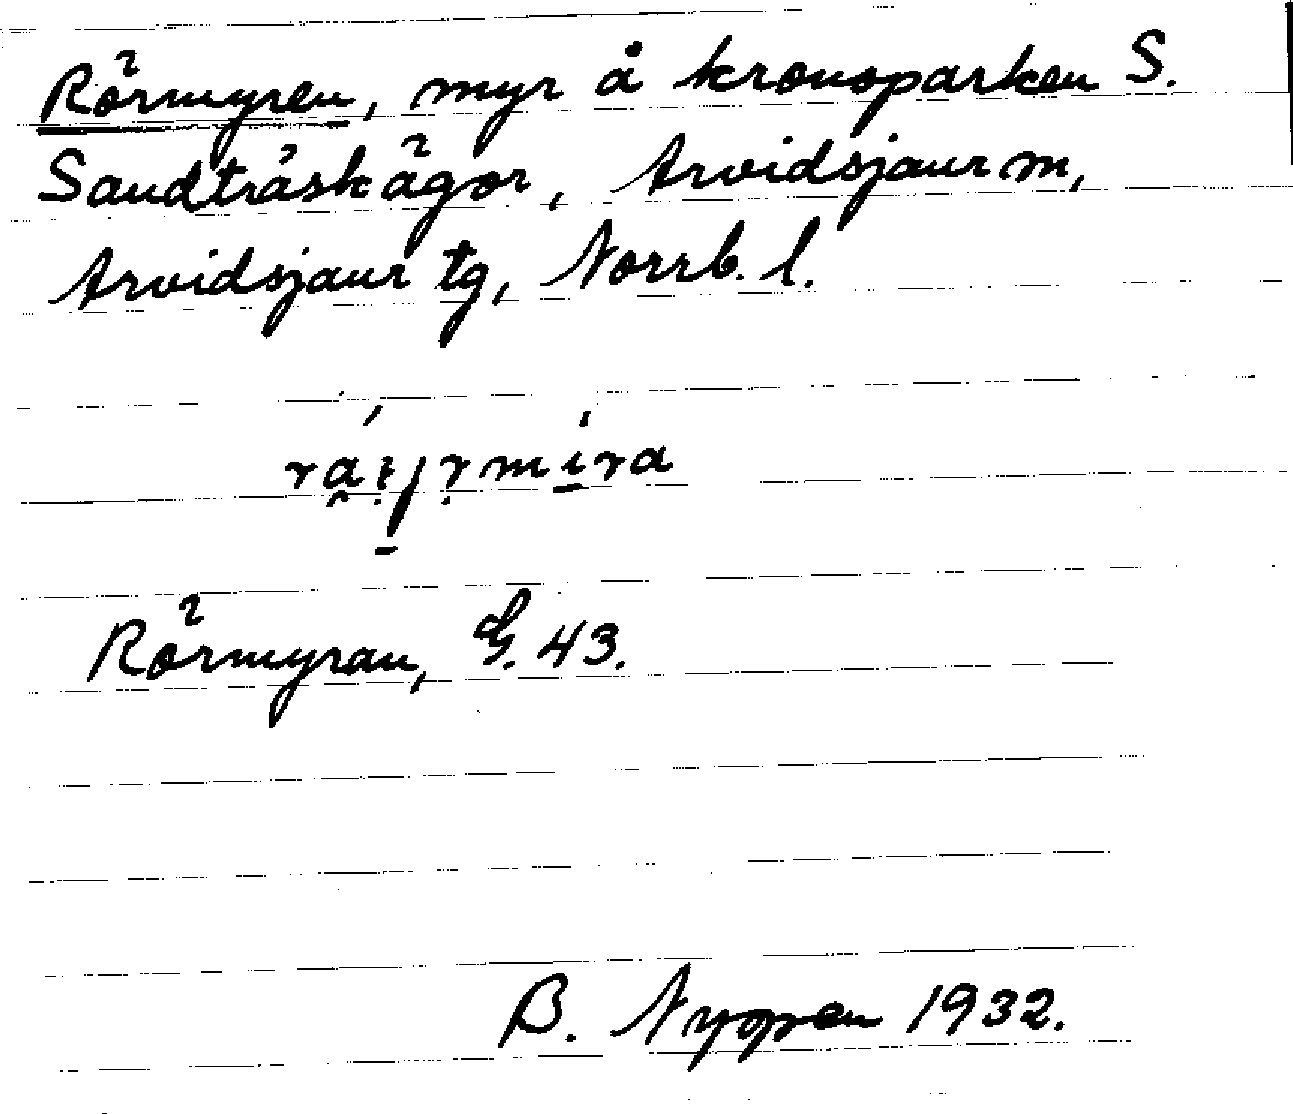 Rörmyren, myr å kronoparken S.
Sandträskägor, Arvidsjaur sn,
Arvidsjaur tg, Norrb. l.
Rörmyran, G. 43.
B. Nygren 1932.